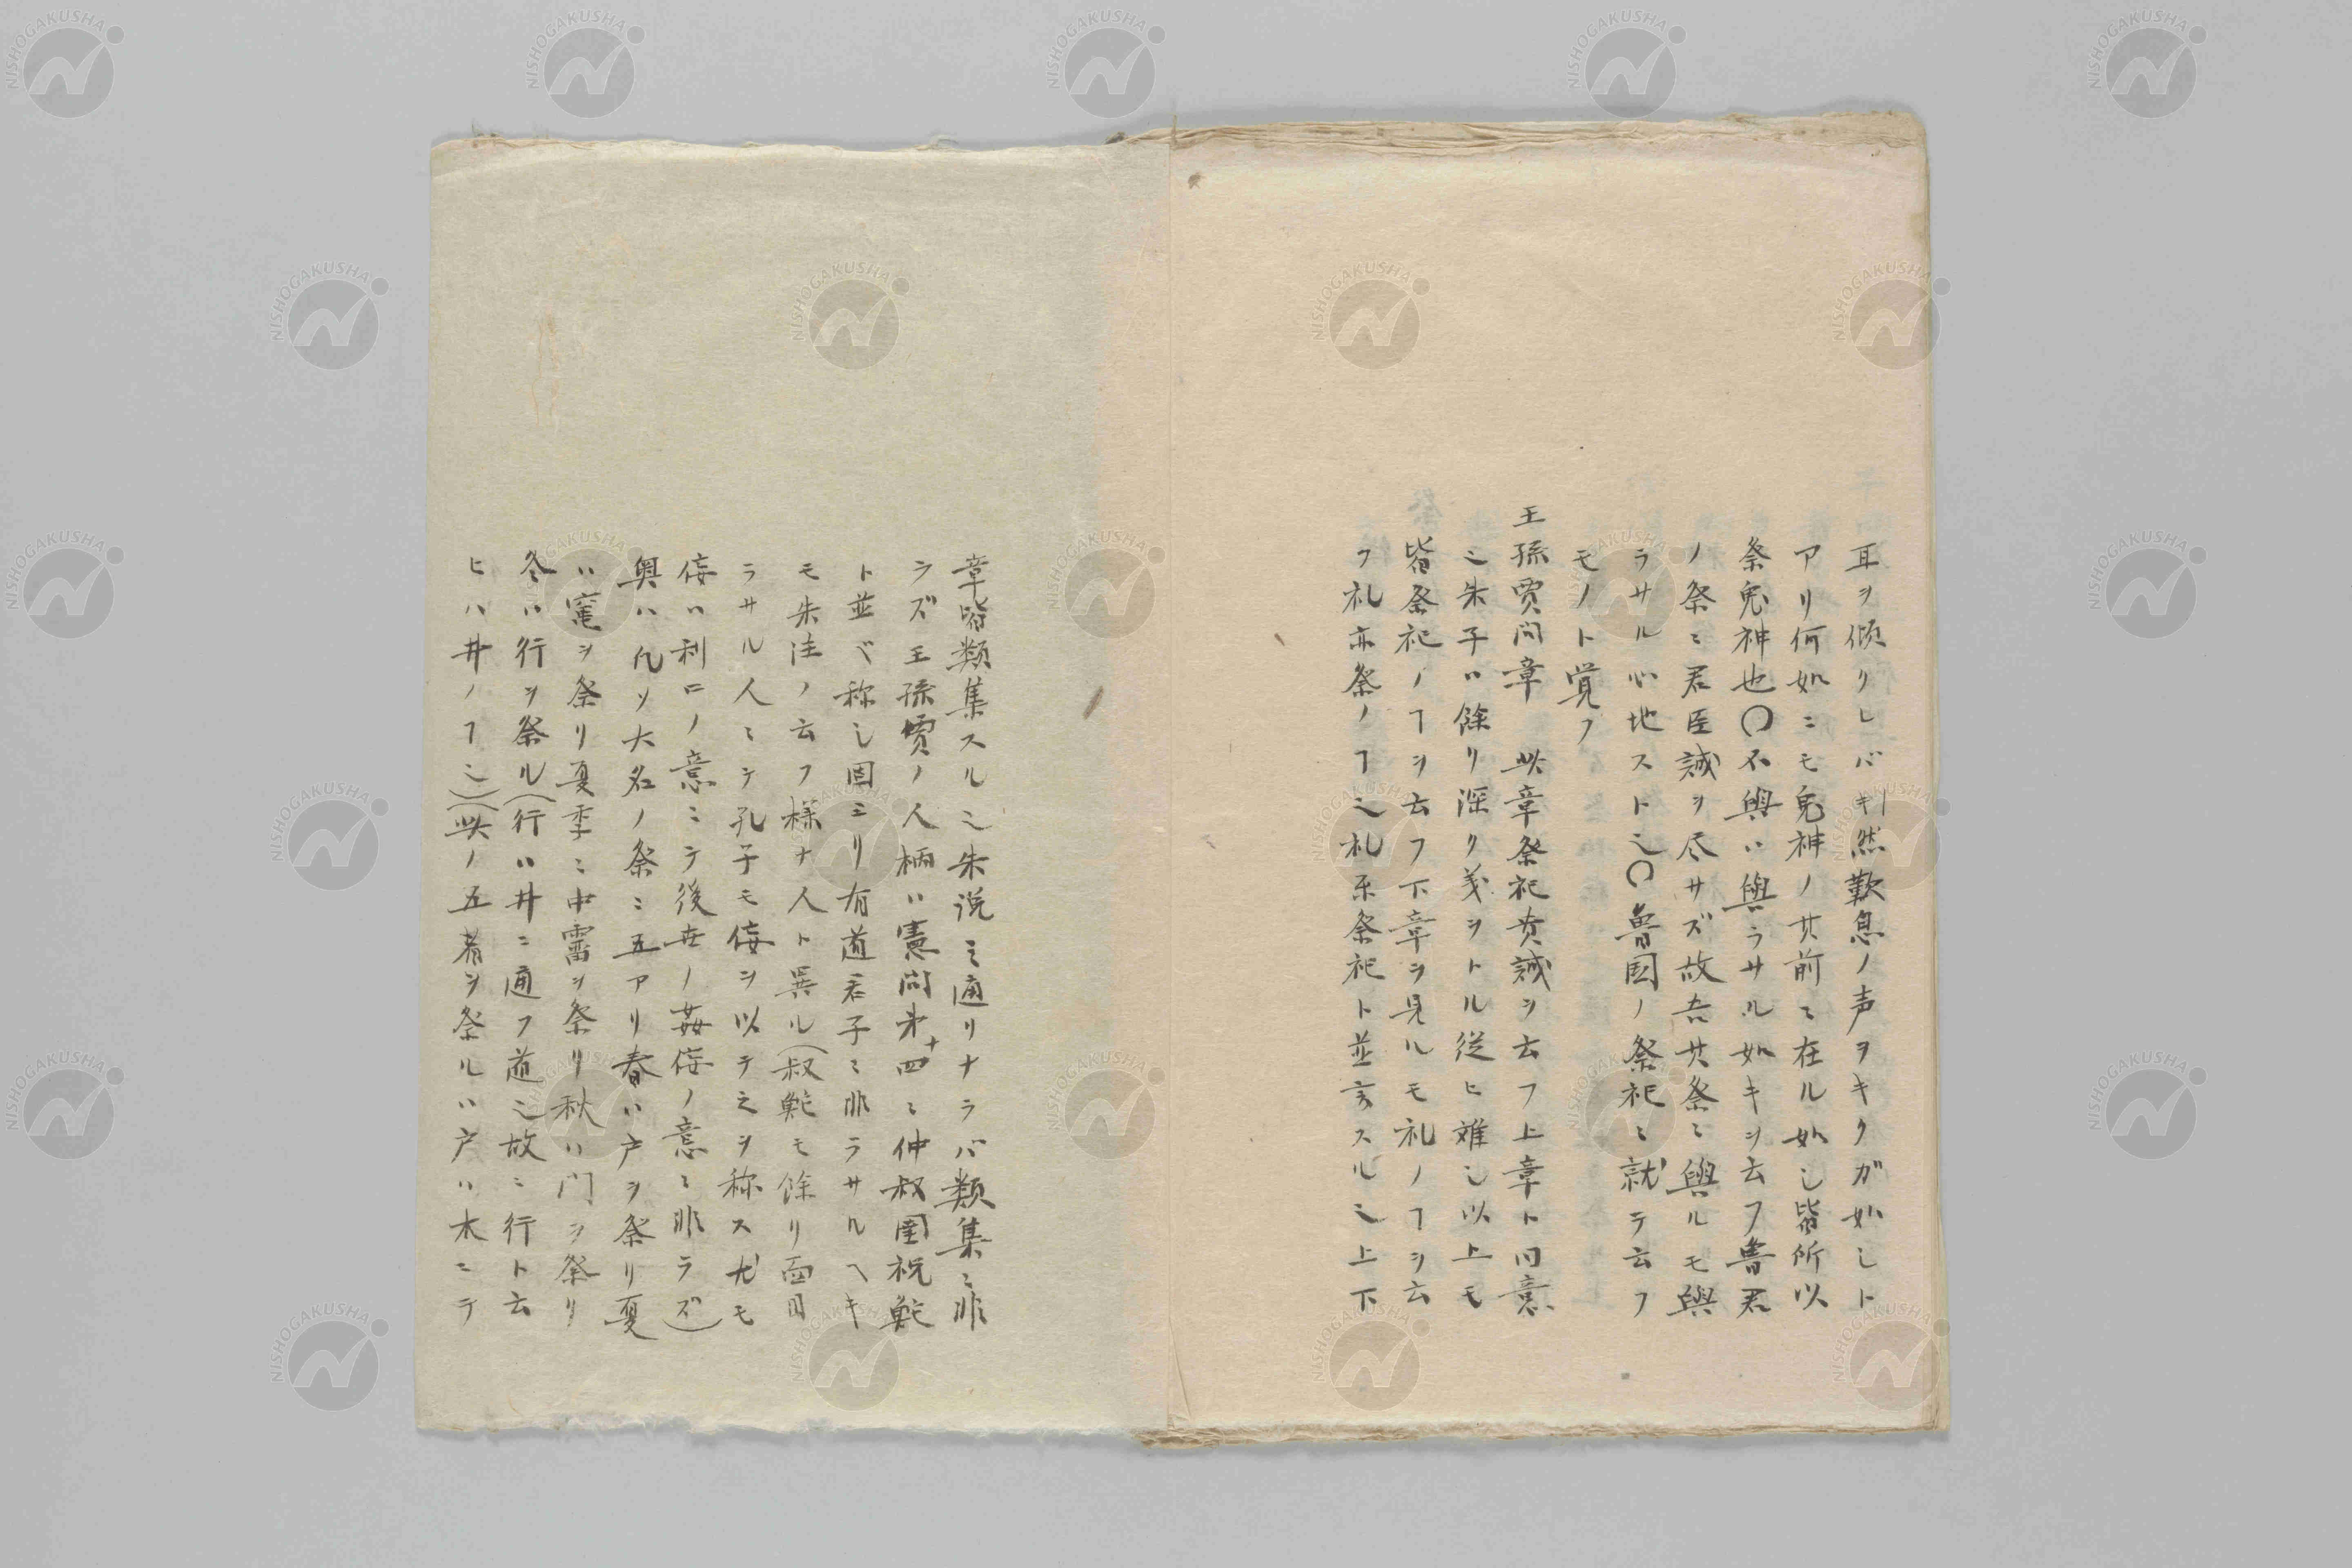 耳ヲ傾クレバキ然歎息ノ声ヲキクガ如シト
アリ何如ニモ鬼神ノ其前ニ在ル如シ皆所以
祭鬼神也〇不與ハ與ラサル如キヲ云フ魯君
ノ祭ニ君臣誠ヲ尽サズ故吾其祭ニ與ルモ與
ラサル心地スト也〇魯国ノ祭祀ニ就テ云フ
モノト覚フ
王孫賈問章 此章祭祀貴誠ヲ云フ上章ト同意
也朱子ハ餘リ深ク義ヲトル従ヒ難シ以上モ
皆祭祀ノヿヲ云フ下章ヲ見ルモ礼ノヿヲ云
フ礼亦祭ノヿ也礼樂祭祀ト並言スル也上下
章皆類集スル也朱説ニ通リナラバ類集ニ非
ラズ王孫賈ノ人柄ハ憲問第十四ニ仲叔圉祝鮀
ト並ベ称シ固ヨリ有道君子ニ非ラサルヘキ
モ朱注ノ云フ様ナ人ト異ル(叔鮀モ餘リ面目
ラサル人ニテ孔子モ侫ヲ以テ之ヲ称ス尤モ
侫ハ利口ノ意ニテ後世ノ姦侫ノ意ニ非ラズ)
奥ハ凡ソ大名ノ祭ニ五アリ春ハ戸ヲ祭リ夏
ハ竃ヲ祭リ夏季ニ中霤ヲ祭リ秋ハ門ヲ祭リ
冬ハ行ヲ祭ル(行ハ井ニ通フ道也故ニ行ト云
ヒハ井ノヿ也)(此ノ五者ヲ祭ルハ戸ハ木ニテ
NISHOGAKUSHA